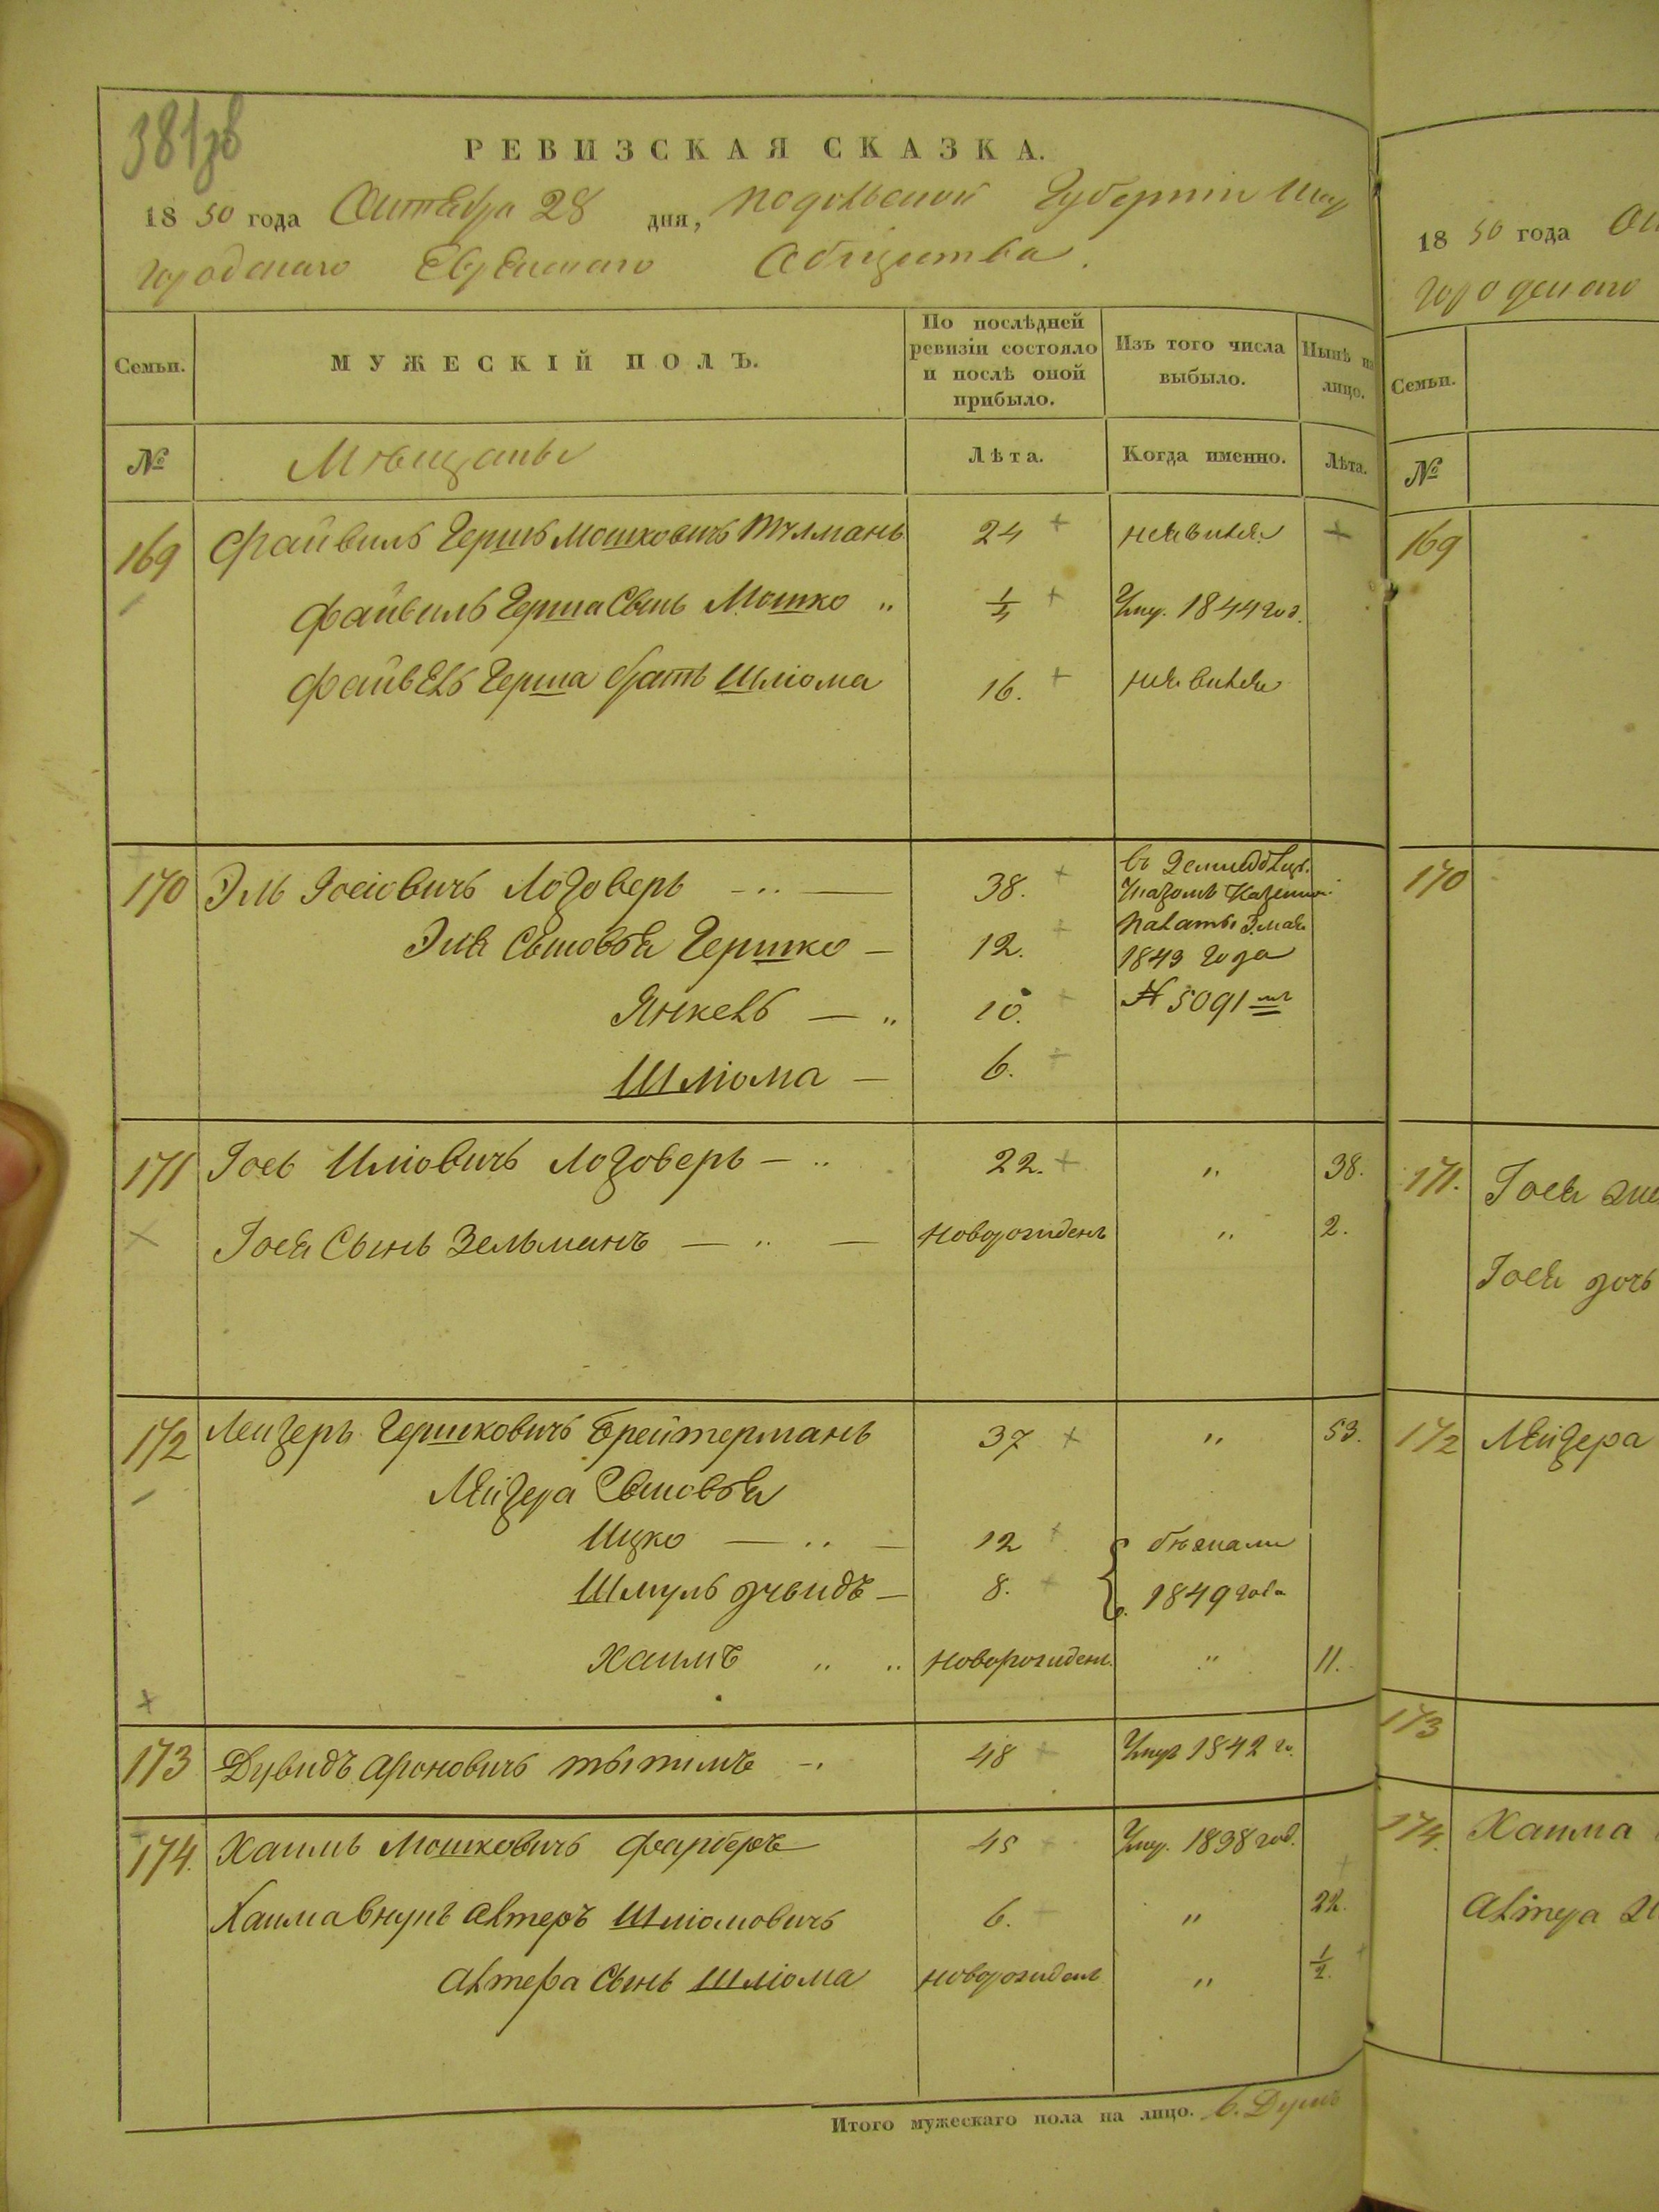 381зв
РЕВИЗСКАЯ СКАЗКА.
1850 года Октября 28 дня, Подольской Губерніи Шар
городскаго Еврейскаго Общества.
Семьи. МУЖЕСКІЙ ПОЛЪ. По послѣдней ревизіи состояло и послѣ оной прибыло. Изъ того числа выбыло. Нынѣ на лицо.
№ Мѣщане Лѣта. Когда именно. Лѣта.
169 Файвиль Гершъ Мошковичъ 24 неявился
Файвиль Герша Сынъ Мошко " Умер. 1844 год.
Файвель Герша братъ Шліома 16. неявился
170 Эль Іосіовичъ Лозоверъ 38. въ Земледѣльц.
Указомъ Казенной
Эля Сыновья Гершко 12. Палаты 3 мая
1843 года
Янкель 10. № 5091
Шліома 6.
171 Іось Иліовичъ Лозоверъ 22. " 38.
Іося Сынъ Зельманъ новорожденъ " 2.
172 Лейзеръ Гершковичъ Брейтерманъ 37 " 53.
Лейзера Сыновья
Ицко 12 бѣжали
Шмуль Дувидъ 8. 1849 года
Хаимъ " " новорожден. " 11.
173 Дувидъ Ароновичъ 48 Умер 1842 го.
174. Хаимъ Мошковичъ Фарберъ 45 Умер. 1838 год.
Хаима внукъ Алтеръ Шліомовичъ 6. " 22.
Алтера Сынъ Шліома новорожден " 1/2.
Итого мужескаго пола на лицо. 6. Душъ
1850 года
городскаго
Семьи.
№
169
170
171. Іося
Іося дочь
172 Лейзера
173
174. Хаима
Алтера